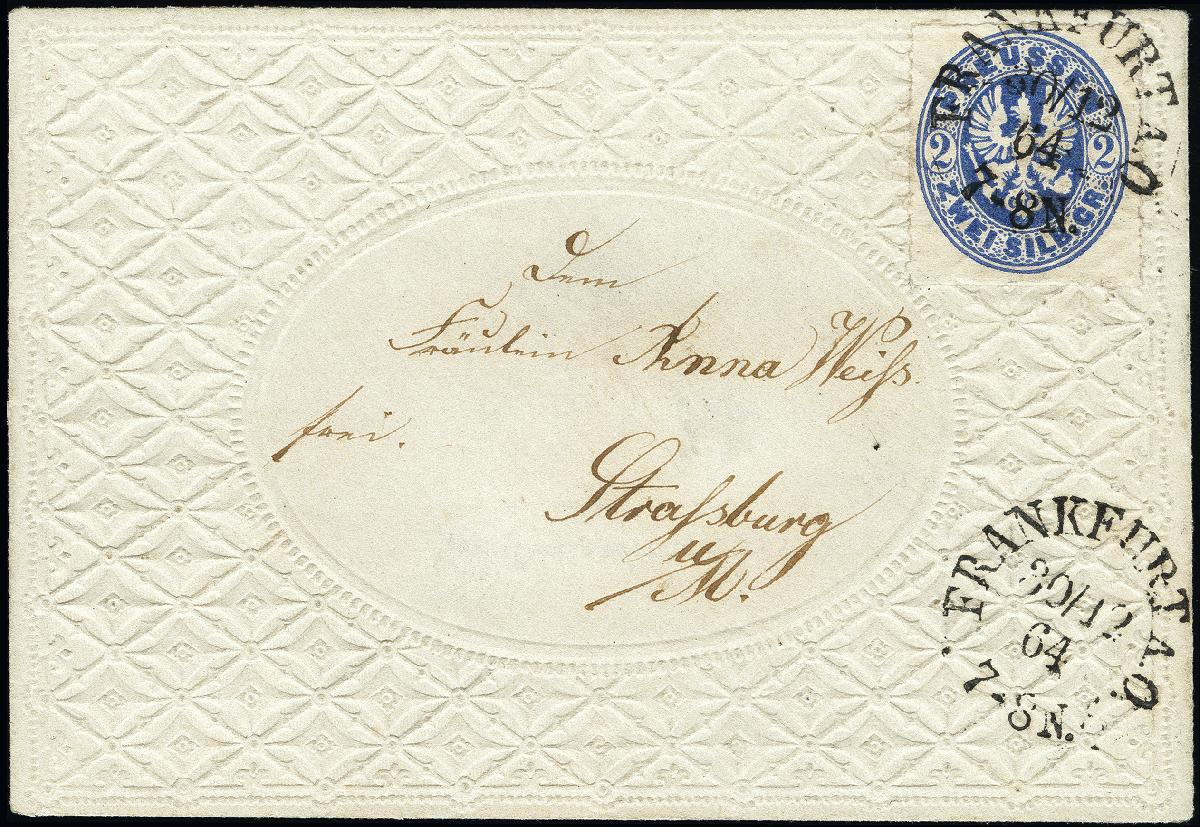 PREUSSEN
2 2
ZWEI SILB.GR.
FRANKFURT A.O.
30/12
64
7-8N.
Dem
Fräulein Anna Weiſs.
frei.
Straſsburg
u/M.
FRANKFURT A.O.
30/12
64
7-8N.